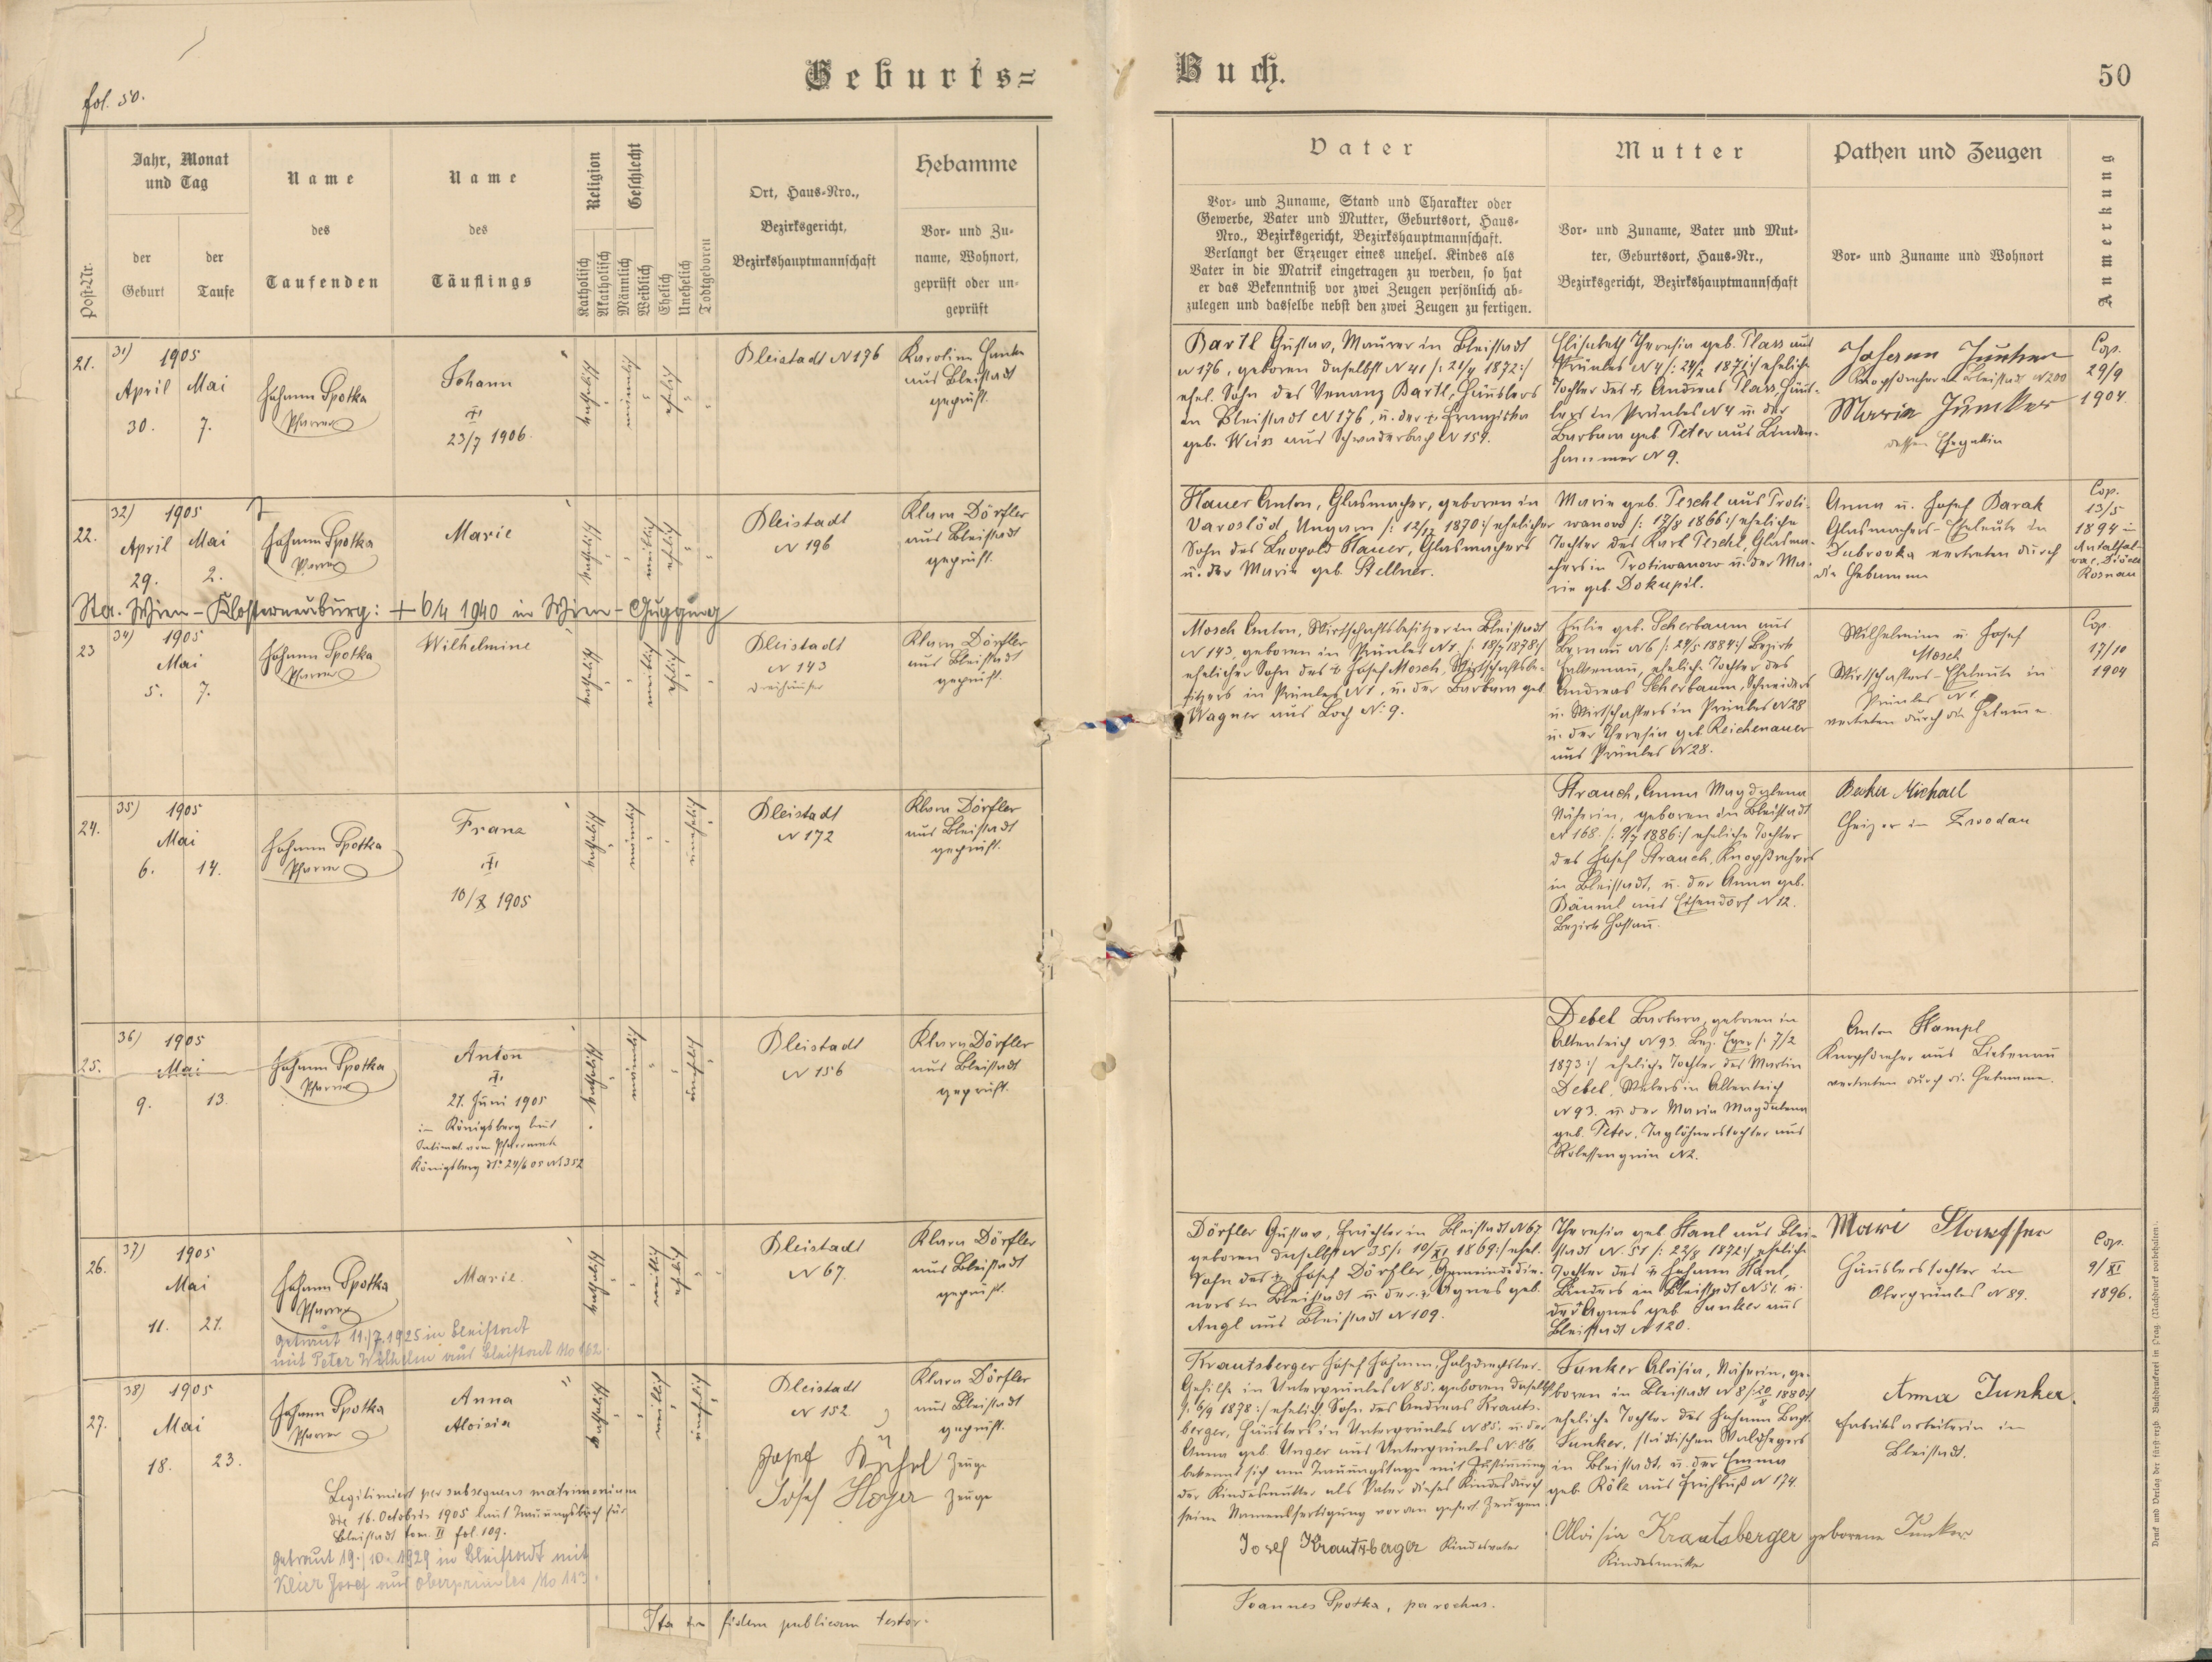 fol. 50.
Geburts=
Buch.
50
Post=Nr.
Jahr, Monat
und Tag
der
Geburt
der
Taufe
Name
des
Taufenden
Name
des
Täuflings
Religion
Katholisch
Akatholisch
Geschlecht
Männlich
Weiblich
Ehelich
Unehelich
Todtgeboren
Ort, Haus=Nro.,
Bezirksgericht,
Bezirkshauptmannschaft
Hebamme
Vor= und Zu=
name, Wohnort,
geprüft oder un=
geprüft
Vater
Vor= und Zuname, Stand und Charakter oder
Gewerbe, Vater und Mutter, Geburtsort, Haus=
Nro., Bezirksgericht, Bezirkshauptmannschaft.
Verlangt der Erzeuger eines unehel. Kindes als
Vater in die Matrik eingetragen zu werden, so hat
er das Bekenntniß vor zwei Zeugen persönlich ab=
zulegen und dasselbe nebst den zwei Zeugen zu fertigen.
Mutter
Vor= und Zuname, Vater und Mut=
ter, Geburtsort, Haus=Nr.,
Bezirksgericht, Bezirkshauptmannschaft
Pathen und Zeugen
Vor= und Zuname und Wohnort
Anmerkung
21.
31) 1905
April Mai
30. 7.
Johann Spotka
Pfarrer
Johann
23/7 1906.
katholisch
männlich
ehelich
Bleistadt N 176
Karolina Hanke
aus Bleistadt
geprüft.
Bartl Gustav, Maurer in Bleistadt
N 176, geboren daselbst N 41 /: 21/4 1872 :/
ehel. Sohn des Venanz Bartl, Häuslers
in Bleistadt N 176, u. der † Franziska
geb. Weiss aus Schwaderbach N 154.
Elisabeth Theresia geb. Plass aus
Prünles N 4 /: 24/2 1871 :/ eheliche
Tochter des †, Andreas Plass, Häus-
lers in Prünles N 4 u. der
Barbara geb. Peter aus Linden-
hammer N 9.
Johann Junker
Knopfdrechsler in Bleistadt N 200
Maria Junker
dessen Ehegattin
Cop.
29/9
1904.
22.
32) 1905
April Mai
29. 2.
Johann Spotka
Pfarrer
Marie
katholisch
weiblich
ehelich
Bleistadt
N 196
Klara Dörfler
aus Bleistadt
geprüft.
Hauer Anton, Glasmacher, geboren in
Varoslöd, Ungarn /: 12/12 1870 :/ ehelicher
Sohn des Leopold Hauer, Glasmachers
u. der Maria geb. Stellner.
Marie geb. Peschl aus Proti-
wanow /: 17/8 1866 :/ eheliche
Tochter des Karl Peschl, Glasma-
chers in Protiwanow u. der Ma-
rie geb. Dokupil.
Anna u. Josef Barak
Glasmachers-Eheleute in
Dubrovka vertreten durch
die Hebamme
Cop.
13/5
1894 in
Rosnau
Sta. Wien-Klosterneuburg: + 6/4 1940 in Wien-Gugging
23
34) 1905
Mai
5. 7.
Johann Spotka
Pfarrer
Wilhelmine
katholisch
weiblich
ehelich
Bleistadt
N 143
Dreihäuser
Klara Dörfler
aus Bleistadt
geprüft.
Mosch Anton, Wirtschaftsbesitzer in Bleistadt
N 143, geboren in Prünles N 1, /: 18/7 1878 :/
ehelicher Sohn des † Josef Mosch, Wirtschaftsbe-
sitzers in Prünles N 1, u. der Barbara geb.
Wagner aus Loch N: 9.
Julie geb. Scherbaum aus
Bernau N 6 /: 24/5 1884 :/ Bezirk
Falkenau, eheliche Tochter des
Andreas Scherbaum, Schneiders
u. Wirtschafters in Prünles N 28
u. der Theresia geb. Reichenauer
aus Prünles N 28.
Wilhelmine u. Josef
Mosch
Wirtschafters-Eheleute in
Prünles N 1
vertreten durch die Hebamme
Cop.
17/10
1904
24.
35) 1905
Mai
6. 14.
Johann Spotka
Pfarrer
Franz
10/X 1905
katholisch
männlich
unehelich
Bleistadt
N 172
Klara Dörfler
aus Bleistadt
geprüft.
Strauch, Anna Magdalena
Näherin, geboren in Bleistadt
N 168. /: 9/7 1886 :/ eheliche Tochter
des Josef Strauch, Knopfdrehers
in Bleistadt, u. der Anna geb.
Bäuml aus Eisendorf N 12.
Bezirk Hostau.
Becker Michael
Heizer in Zwodau
25.
36) 1905
Mai
9. 13.
Johann Spotka
Pfarrer
Anton
21. Juni 1905
in Königsberg laut
Intimat vom Pfarramte
Königsberg dto 24/6 05 N 352
katholisch
männlich
unehelich
Bleistadt
N 156
Klara Dörfler
aus Bleistadt
geprüft.
Debel Barbara, geboren in
Altenteich N 93. Bez. Eger /: 7/2
1873 :/ eheliche Tochter des Martin
Debel, Webers in Altenteich
N 93. u. der Maria Magdalena
geb. Peter, Taglöhnerstochter aus
N 2.
Anton Hampl
Knopfdreher aus Liebenau
vertreten durch die Hebamme.
26.
37) 1905
Mai
11. 21.
Johann Spotka
Pfarrer
Marie
katholisch
weiblich
ehelich
Bleistadt
N 67.
Klara Dörfler
aus Bleistadt
geprüft.
Dörfler Gustav, Frächter in Bleistadt N 67
geboren daselbst N 35 /: 10/XI 1869 :/ ehel.
Sohn des † Josef Dörfler, Gemeindedie-
ners in Bleistadt u. der † Agnes geb.
Angl aus Bleistadt N 109.
Theresia geb. Hanl aus Blei-
stadt N. 51 /: 22/8 1872 :/ eheliche
Tochter des † Johann Hanl,
Binders in Bleistadt N 51. u.
der † Agnes geb. Junker aus
Bleistadt N 120.
Häuslerstochter in
Obergrünles N 89.
Cop.
9/XI
1896.
getraut 11./7. 1925 in Bleistadt
mit Peter Wilhelm aus Bleistadt No 162.
27.
38) 1905
Mai
18. 23.
Johann Spotka
Pfarrer
Anna
Aloisia
katholisch
weiblich
unehelich
Bleistadt
N 152
Klara Dörfler
aus Bleistadt
geprüft.
Josef Zeuge
Josef Hoyer Zeuge
Krautsberger Josef Johann, Holzdrechsler-
Gehilfe in Unterprünles N 85, geboren daselbst
/: 6/9 1878 :/ ehelich. Sohn des Andreas Krauts-
berger, Häuslers in Unterprünles N 85. u. der
Anna geb. Unger aus Unterprünles N. 86.
bekennt sich am Trauungstage mit Zustimmung
der Kindesmutter als Vater dieses Kindes durch
seine Namensfertigung vor den gefert. Zeugen.
Josef Krautsberger Kindesvater
Junker Aloisia, Näherin, ge-
boren in Bleistadt N 8 /: 20/8 1880 :/
eheliche Tochter des Johann Bapt.
Junker, städtischen Waldhegers
in Bleistadt, u. der Emma
geb. Rölz aus Frühbuß N 174.
Aloisia Krautsberger geborene Junker
Kindesmutter
Anna Junker.
Fabriksarbeiterin in
Bleistadt.
Legitimiert per subsequens matrimonium
die 16. Octobris 1905 laut Trauungsbuch für
Bleistadt tom. II fol. 109.
Getraut 19./10. 1929 in Bleistadt mit
Klier Josef aus Oberprünles No 113.
Ita in fidem publicam testor:
Joannes Spotka, parochus.
Druck und Verlag der fürst-erzb. Buchdruckerei in Prag. (Nachdruck vorbehalten.)